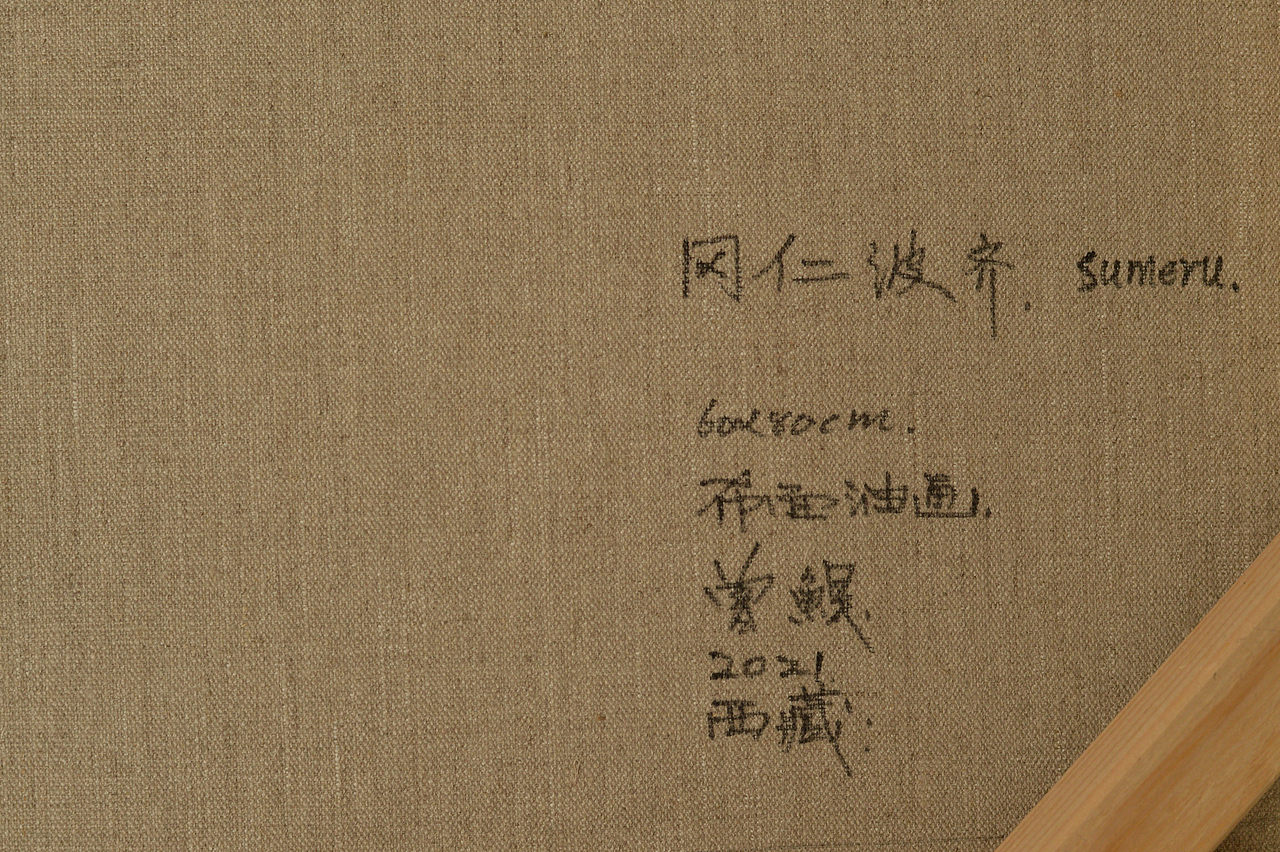 冈仁波齐. Sumeru.
60x80cm.
布面油画.
曾鳗.
2021
西藏.